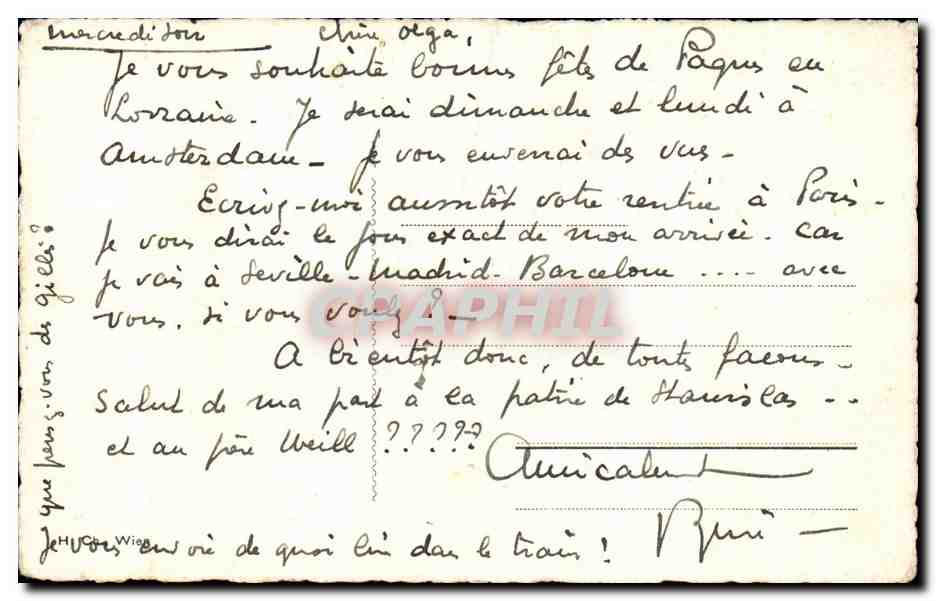 mercredi soir    Chère Olga,
Je vous souhaite bonnes fêtes de Pâques en
Lorraine. Je serai dimanche et lundi à
Amsterdam - Je vous enverrai des vues -
Ecrivez-moi aussitôt votre rentrée à Paris -
Je vous dirai le jour exact de mon arrivée. Car
je vais à Seville - Madrid - Barcelone .... avec
vous, si vous voulez ! -
A bientôt donc, de toutes façons -
Salut de ma part à la patrie de Stanislas ..
et au père Weill ?????
Amicalement
Je vous envoie de quoi lire dans le train !
que pensez-vous de Gilles ?
H. Co. Wien
CPAPHIL